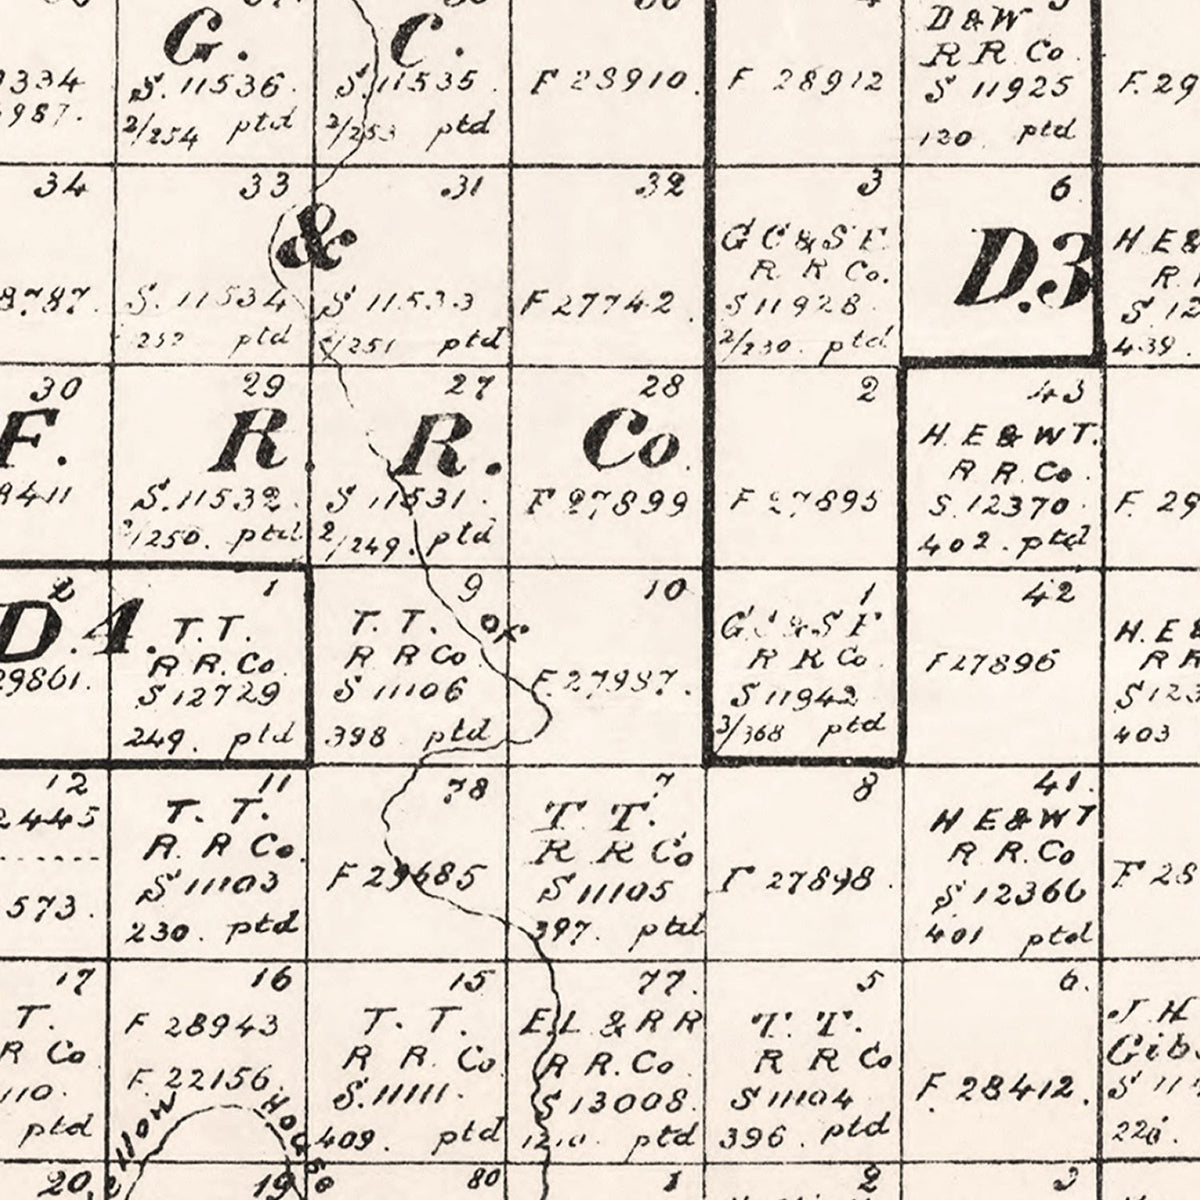 D & W
G.
C.
R R Co
334
S. 11536
S. 11535
F 28910.
F 28912
S 11925
F. 29
987.
2/254 ptd
2/253 ptd
120 ptd
34
33
31
32
3
6
&
G C & S F
D.3
H E &
R R Co.
8787.
S. 11534
S 11533
F 27742.
S 11928
S 12
252 ptd
2/251 ptd
2/230. ptd
439.
30
29
27
28
2
43
F.
R
R.
Co
H. E & W T.
R R. Co.
8411
S. 11532.
S 11531.
F 27899
F 27895
S. 12370
F. 29
2/250. ptd
2/249. ptd
402. ptd
2
1
9
10
1
42
D.4.
T. T.
T. T.
OF
G C & S F
H. E &
R R. Co.
R R Co
R R Co
F 27896
R R
29861.
S 12729
S 11106
F. 27987.
S 11942
S 123
249. ptd
398 ptd
3/368 ptd
403
12
11
78
7
8
41.
2445
T. T.
T T.
H E & W T
R R Co.
R R Co
R R. Co
S 11103
F 29685
S 11105
F 27898.
S 12366
F 28
573.
230. ptd
397. ptd
401 ptd
17
16
15
77.
5
6.
T.
F 28943
T. T.
E.L & R R
T. T.
J. H
R Co
R R. Co
R R. Co
R R Co
Gibs
110.
F. 22156.
S. 11111.
S 13008.
S 11104
F. 28412.
S 11
ptd
409. ptd
ptd
396. ptd
226.
20.
19
80
1
2
3